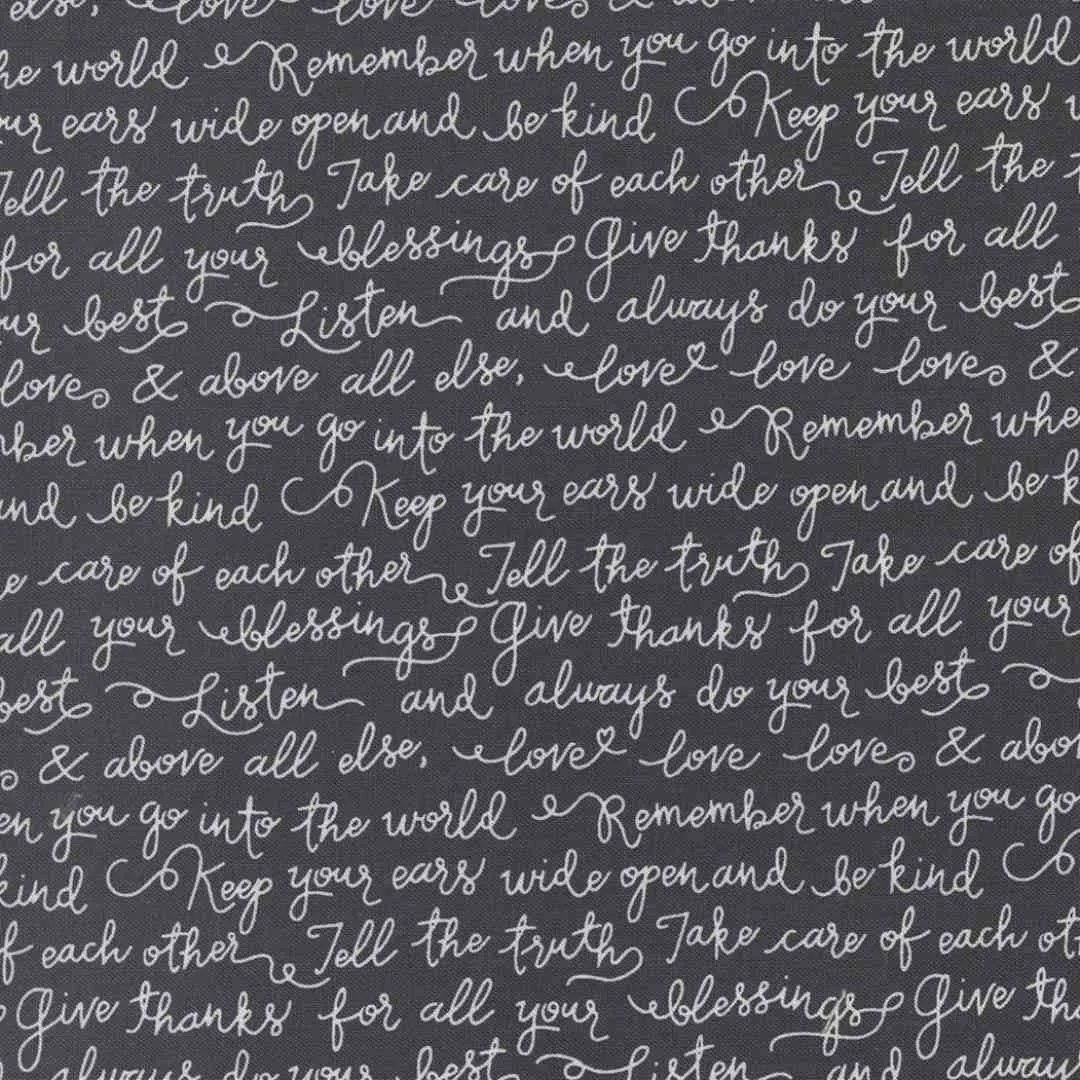 else, love love love & above all
he world Remember when you go into the world
our ears wide open and be kind Keep your ears
Tell the truth Take care of each other Tell the
for all your blessings Give thanks for all
ur best Listen and always do your best
love & above all else, love love love &
mber when you go into the world Remember whe
and be kind Keep your ears wide open and be k
e care of each other Tell the truth Take care of
all your blessings Give thanks for all your
best Listen and always do your best
& above all else, love love love & abo
en you go into the world Remember when you go
kind Keep your ears wide open and be kind
of each other Tell the truth Take care of each ot
Give thanks for all your blessings Give tha
always do your best Listen and always